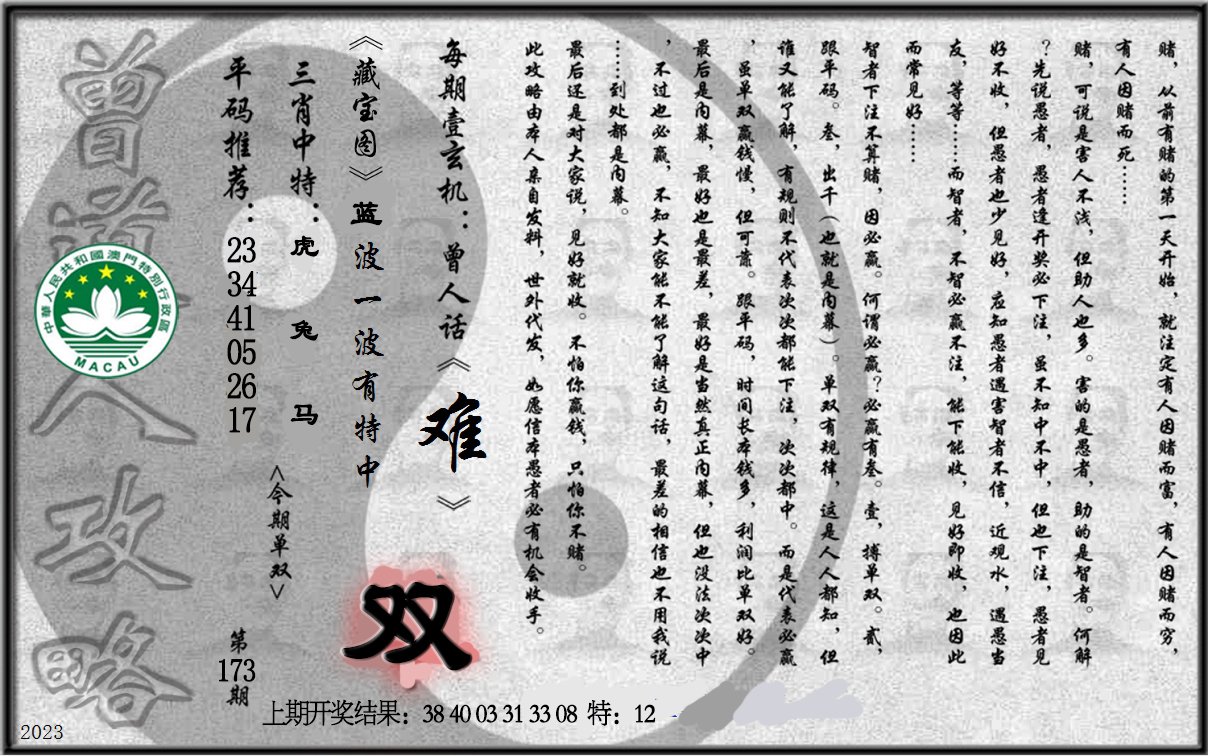 赌，从前有赌的第一天开始，就注定有人因赌而富，有人因赌而穷，
有人因赌而死……
赌，可说是害人不浅，但助人也多。害的是愚者，助的是智者。何解
？先说愚者，愚者逢开奖必下注，虽不知中不中，但也下注，愚者见
好不收，但愚者也少见好，应知愚者遇害智者不信，近观水，遇愚当
友，等等……而智者，不智必赢不注，能下能收，见好即收，也因此
而常见好……
智者下注不算赌，因必赢。何谓必赢？必赢有叁。壹，搏单双。贰，
跟平码。叁，出千（也就是内幕）。单双有规律，这是人人都知，但
谁又能了解，有规则不代表次次都能下注，次次都中。而是代表必赢
，虽单双赢钱慢，但可靠。跟平码，时间长本钱多，利润比单双好。
最后是内幕，最好也是最差，最好是当然真正内幕，但也没法次次中
，不过也必赢，不知大家能不能了解这句话，最差的相信也不用我说
……到处都是内幕。
最后还是对大家说，见好就收。不怕你赢钱，只怕你不赌。
此攻略由本人亲自发料，世外代发，如愿信本愚者必有机会收手。
每期壹玄机：曾人话《难》
《藏宝图》蓝波一波有特中
双
三肖中特：虎 兔 马
<今期单双>
平码推荐：23 34 41 05 26 17
第173期
曾道人攻略
中華人民共和國澳門特別行政區
MACAU
上期开奖结果：38 40 03 31 33 08 特：12
2023